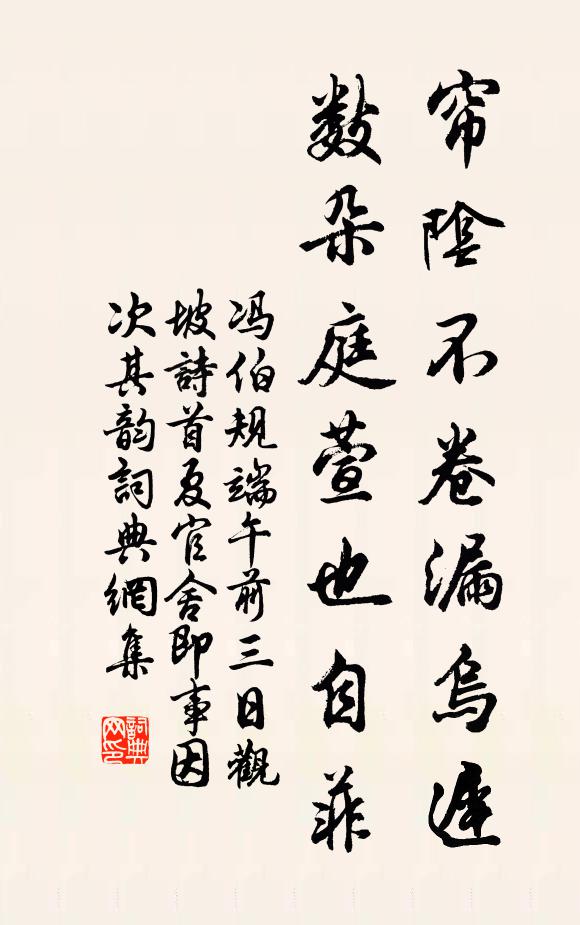 帘陰不卷漏烏遲
數朵庭萱也自菲
冯伯規端午前三日觀
坡詩首夏官舍即事因
次其韵詞典網集
詞典网印